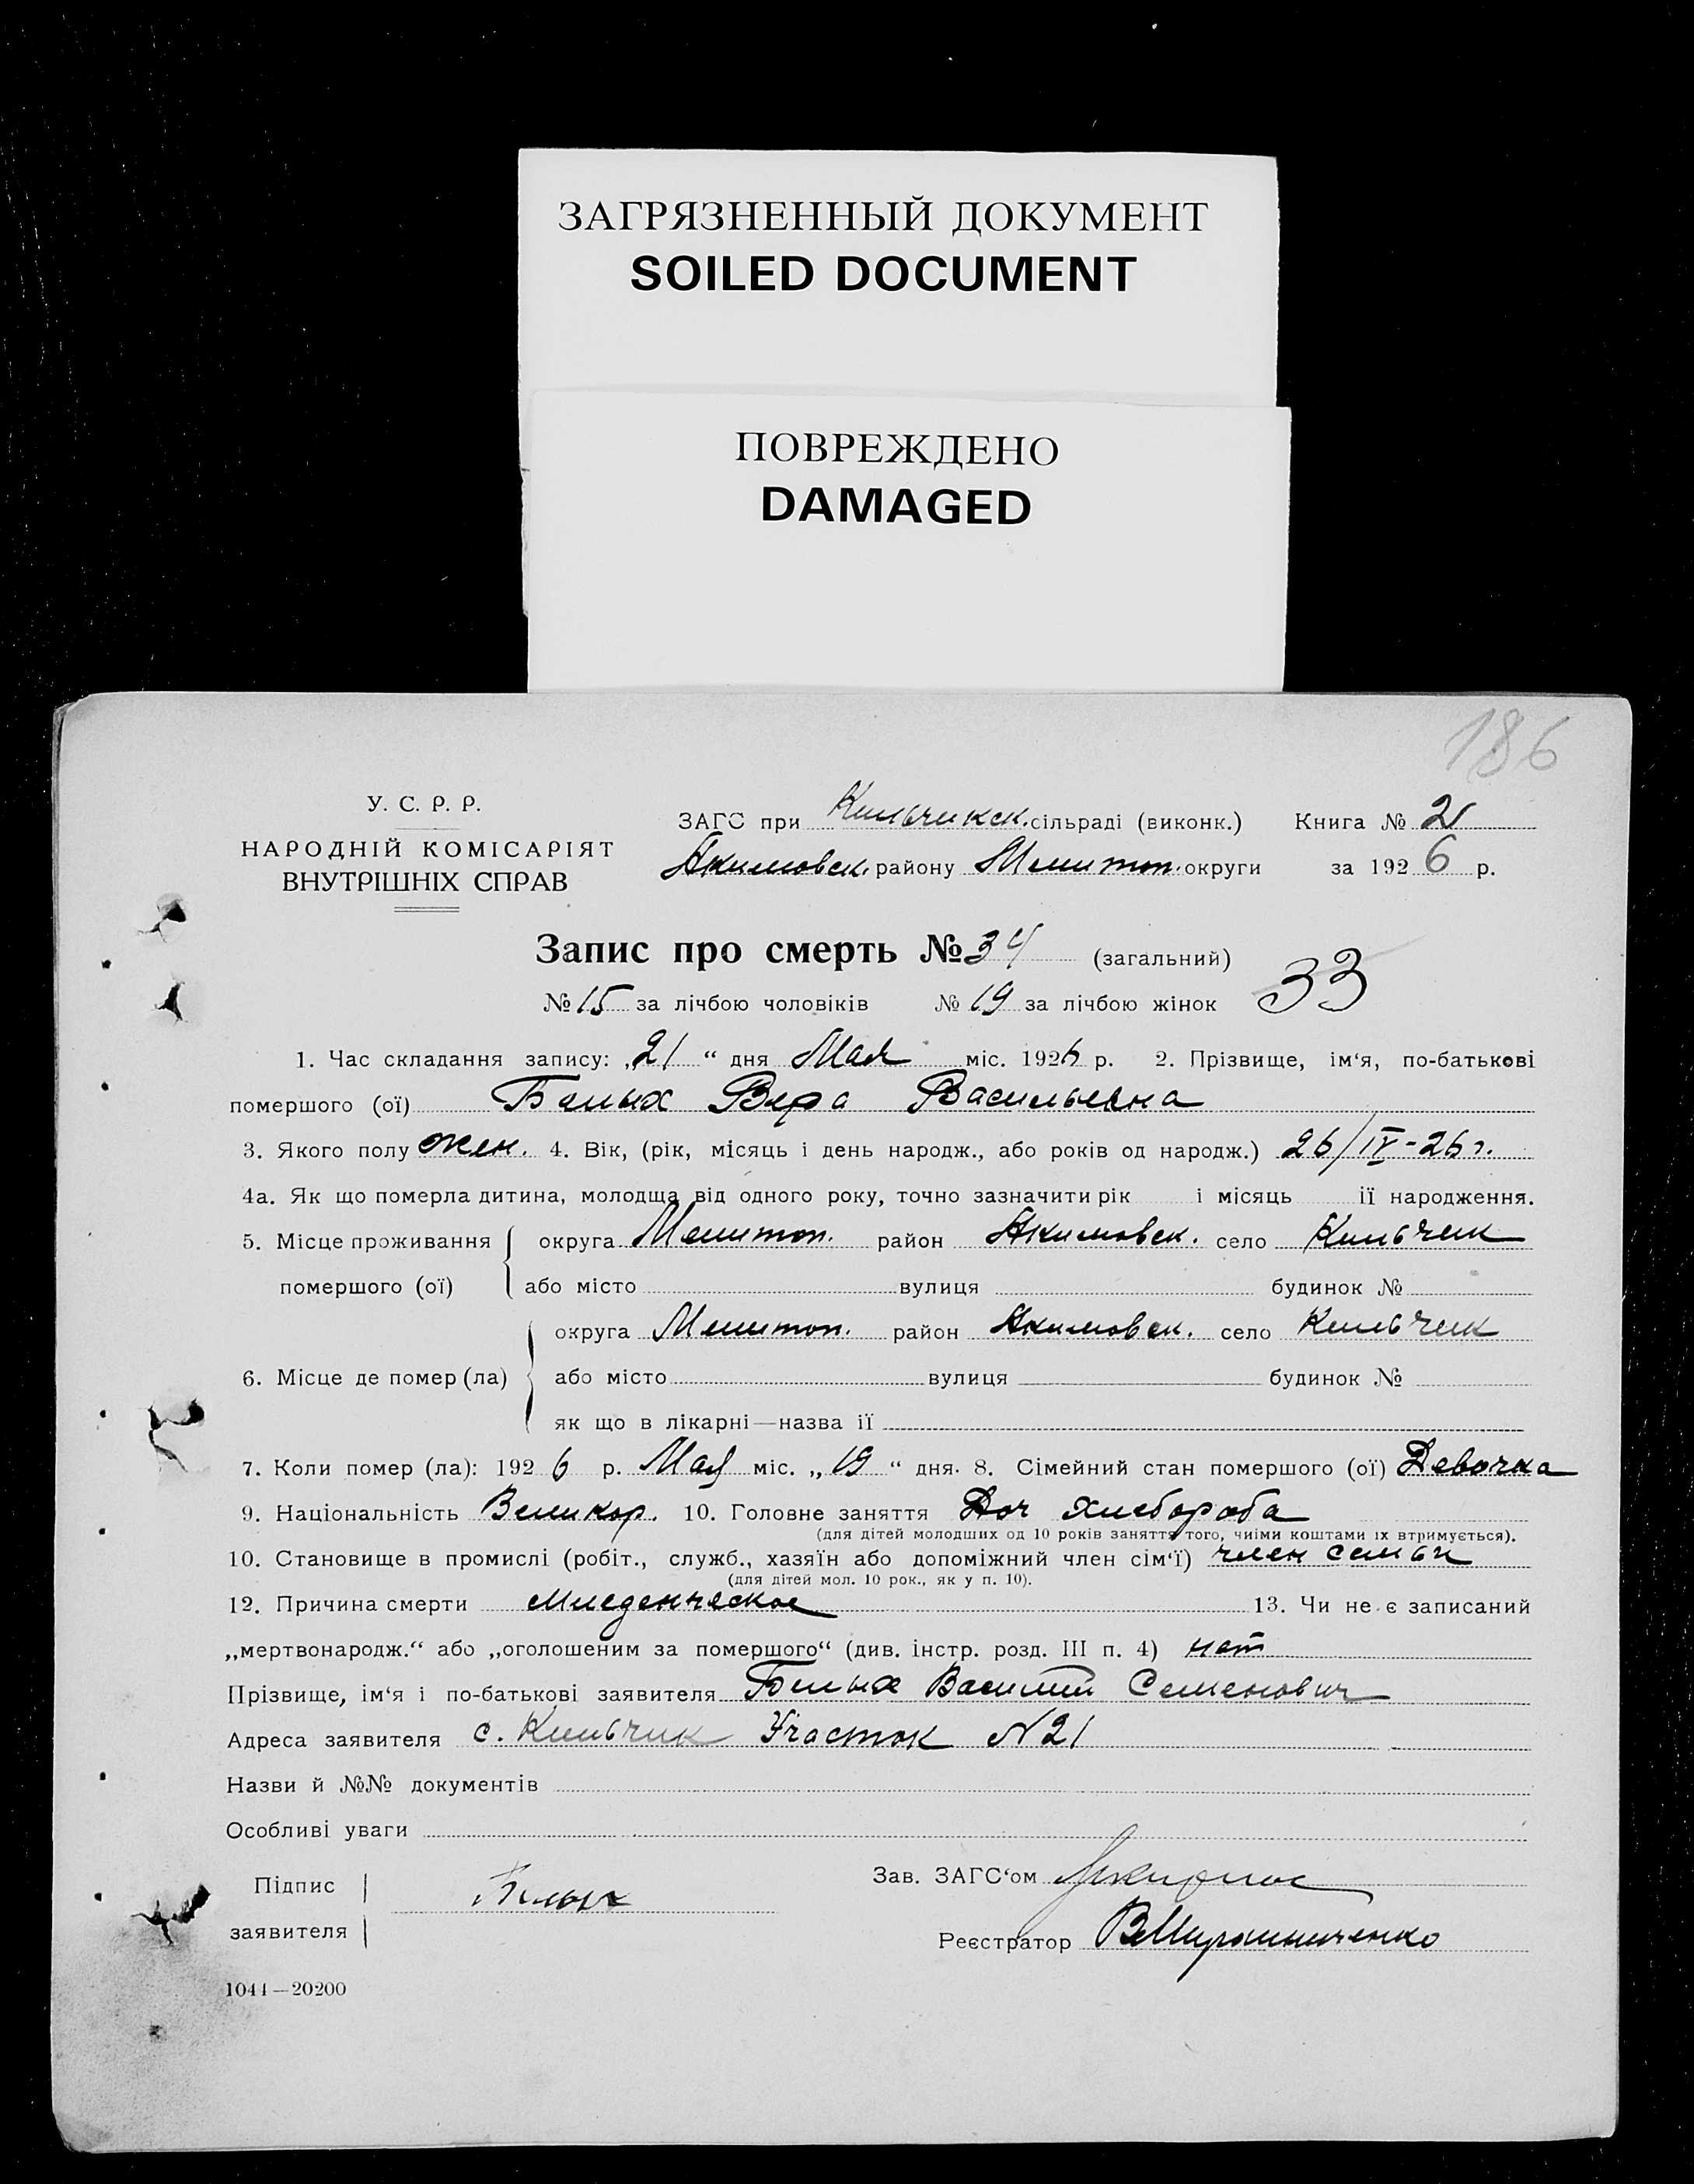 ЗАГРЯЗНЕННЫЙ ДОКУМЕНТ
SOILED DOCUMENT
ПОВРЕЖДЕНО
DAMAGED
186
У. С. Р. Р.
НАРОДНІЙ КОМІСАРІЯТ
ВНУТРІШНІХ СПРАВ
ЗАГС при Кильчикск. сільраді (виконк.) Книга № 2
Акимовск. району Мелитоп. округи за 1926 р.
Запис про смерть № 34 (загальний)
33
№ 15 за лічбою чоловіків № 19 за лічбою жінок
1. Час складання запису: „21“ дня Мая міс. 1926 р. 2. Прізвище, ім‘я, по-батькові
помершого (ої) Белых Вера Васильевна
3. Якого полу жен. 4. Вік, (рік, місяць і день народж., або років од народж.) 26/IV-26 г.
4а. Як що померла дитина, молодща від одного року, точно зазначити рік і місяць ії народження.
5. Місце проживання помершого (ої) округа Мелитоп. район Акимовск. село Кильчик
або місто вулиця будинок №
округа Мелитоп. район Акимовск. село Кильчик
6. Місце де помер (ла) або місто вулиця будинок №
як що в лікарні—назва ії
7. Коли помер (ла): 1926 р. Мая міс. „19“ дня. 8. Сімейний стан помершого (ої) Девочка
9. Національність Великор. 10. Головне заняття Доч хлебороба
(для дітей молодших од 10 років заняття того, чиіми коштами їх втримується).
10. Становище в промислі (робіт., служб., хазяїн або допоміжний член сім‘ї) член семьи
(для дітей мол. 10 рок., як у п. 10).
12. Причина смерти Младенческое 13. Чи не є записаний
„мертвонародж.“ або „оголошеним за помершого“ (див. інстр. розд. III п. 4) нет
Прізвище, ім‘я і по-батькові заявителя Белых Василий Семенович
Адреса заявителя с. Кильчик Участок N 21
Назви й №№ документів
Особливі уваги
Підпис заявителя Белых
Зав. ЗАГС‘ом
Реєстратор В Мирошниченко
1044—20200